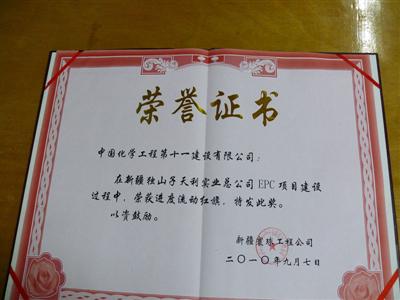 荣誉证书
中国化学工程第十一建设有限公司：
在新疆独山子天利实业总公司EPC项目建设
过程中，荣获进度流动红旗，特发此奖。
以资鼓励。
新疆寰球工程公司
二〇一〇年九月七日